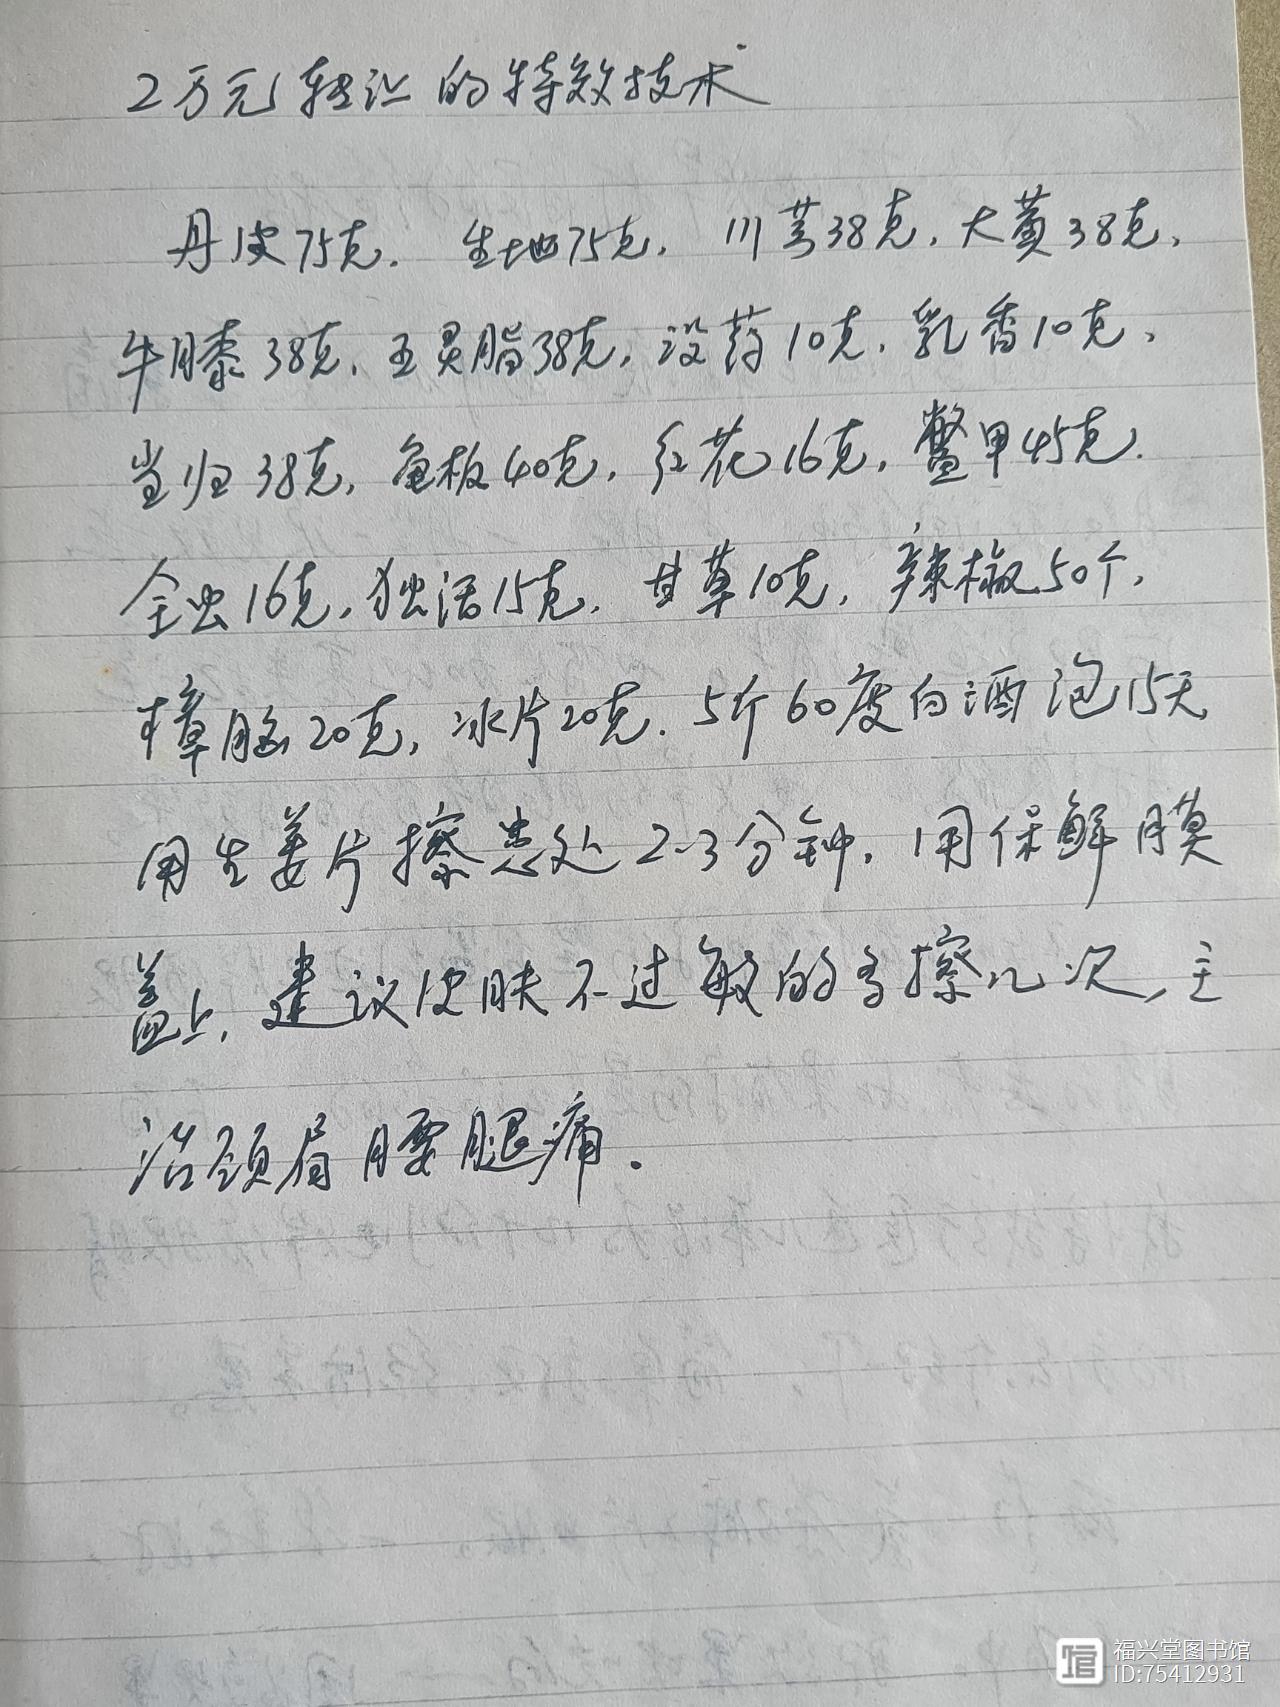 2万元转让的特效技术
丹皮75克. 生地75克, 川芎38克, 大黄38克,
牛膝38克, 五灵脂38克, 没药10克, 乳香10克,
当归38克, 龟板40克, 红花16克, 鳖甲45克.
全虫16克, 独活15克, 甘草10克, 辣椒50个,
樟脑20克, 冰片20克. 5斤60度白酒泡15天
用生姜片擦患处2-3分钟, 用保鲜膜
盖上, 建议皮肤不过敏的多擦几次, 主
治颈肩腰腿痛.
福兴堂图书馆
ID:75412931